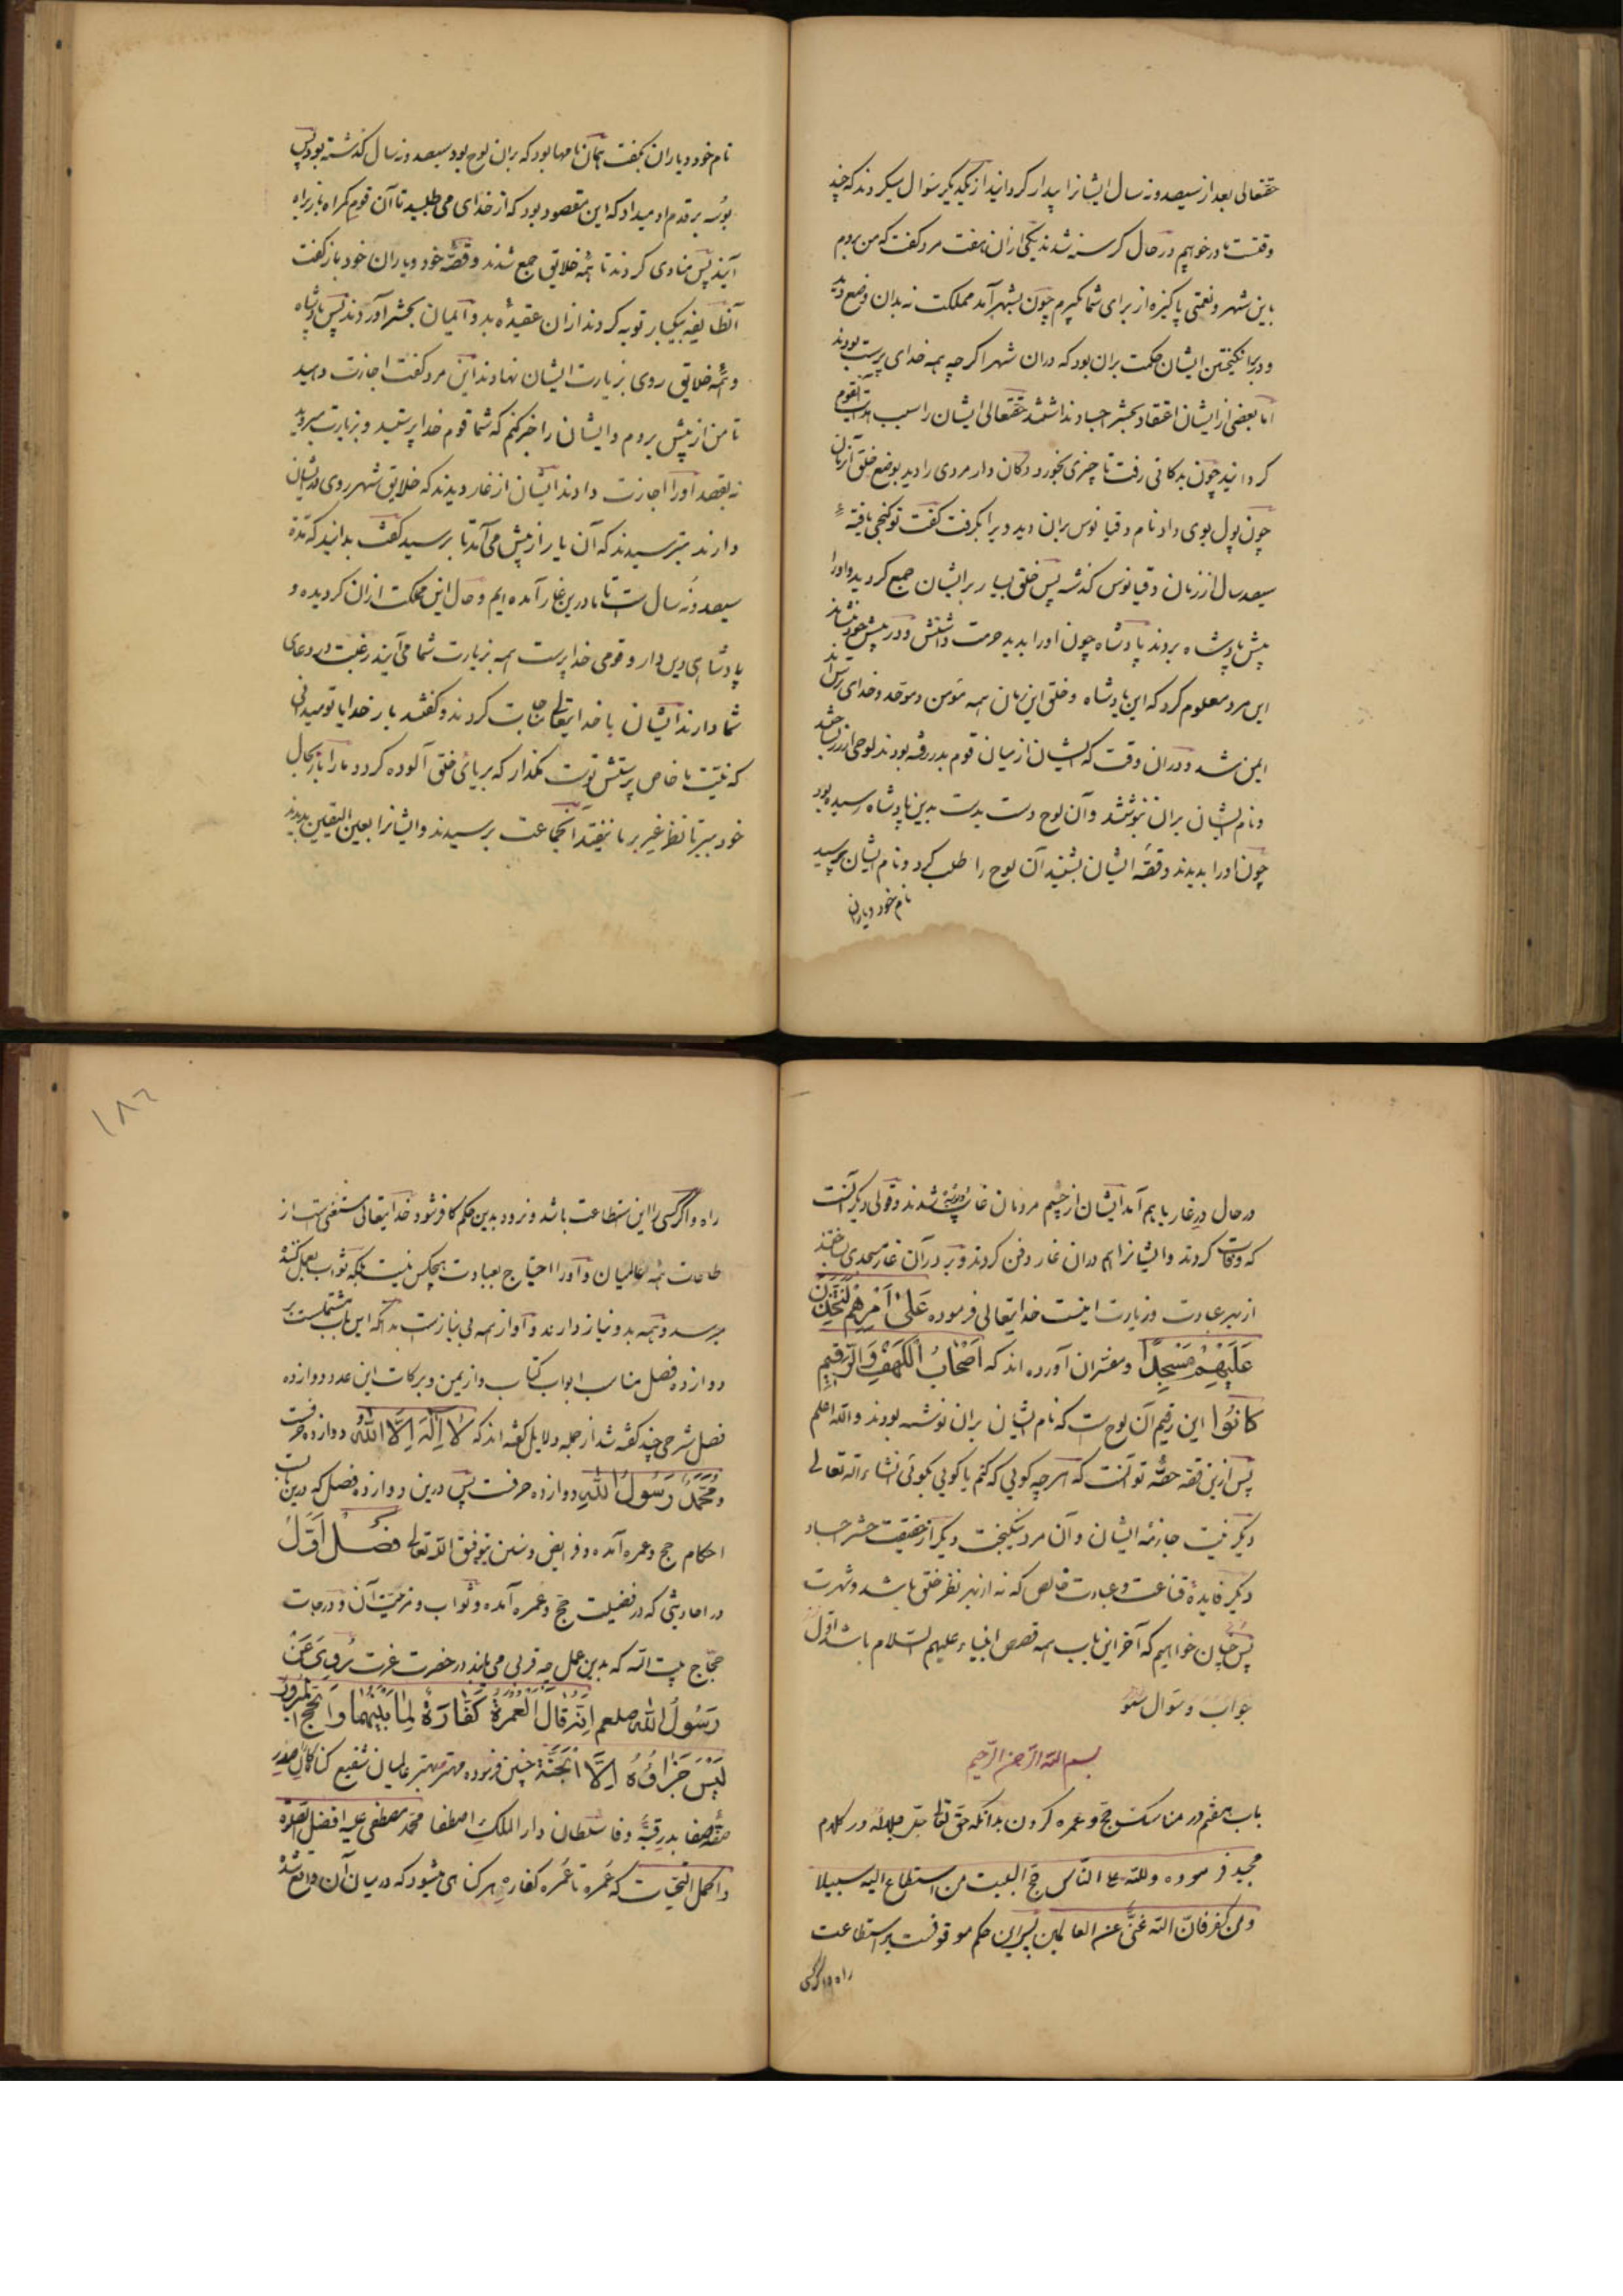 حقتعالی بعد از سیصد و نه سال ایشانرا بیدار کردانید از یکدیکر سؤال میکردند که چند
وقتست تا درخوابیم در حال کرسنه شدند یکی ازان هفت مرد کفت که من بروم
باین شهر و نعمتی پاکیزه از برای شما بکیرم چون بشهر آمد مملکت نه بدان وضع دید
و در برانکیختن ایشان حکمت بران بود که دران شهر اکرچه همه خدای پرست بودند
اما بعضی از ایشان اعتقاد بحشر اجساد نداشتند حقتعالی ایشان را سبب هدایت آنقوم
کردانید چون بدکانی رفت تا چیزی بخورد دکان دار مردی را دید بوضع خلق آن زمان
چون پول بوی داد نام دقیانوس بران دید ویرا بکرفت کفت تو کنجی یافتهٔ
سیصد سال از زمان دقیانوس کذشته پس خلق بسیار برایشان جمع کردید و اورا
پیش پادشاه بردند پادشاه چون اورا بدید حرمت داشتش و در پیش خود بنشاند
این مرد معلوم کرد که این پادشاه و خلق این زمان همه مؤمن و موحد و خدای ترسانند
ایمن شد و دران وقت که ایشان از میان قوم بدر رفته بودند لوحی از زر ساختند
و نام ایشان بران نبوشتند و آن لوح دست بدست بدین پادشاه رسیده بود
چون اورا بدیدند و قصّه ایشان بشنید آن لوح را طلب کرد و نام ایشان پرسید
نام خود و یاران
نام خود و یاران بکفت همان نامها بود که بران لوح بود سیصد و نه سال کذشته بود پس
بوسه بر قدم او میداد که این مقصود بود که از خدای می طلبید تا آن قوم کمراه باز براه
آیند پس منادی کردند تا همه خلایق جمع شدند و قصّه خود و یاران خود باز کفت
آنطایفه بیکبار توبه کردند ازان عقیده بد و ایمان بحشر آوردند پس پادشاه
و همه خلایق روی بزیارت ایشان نهادند این مرد کفت اجازت دهید
تا من از پیش بروم و ایشان را خبر کنم که شما قوم خدا پرستید و بزیارت میروید
نه بقصد اورا اجازت دادند ایشان از غار دیدند که خلایق شهر روی بدیشان
دارند بترسیدند که آن یار از پیش می آمد تا برسید کفت بدانید که مدّة
سیصد و نه سال است تا ما درین غار آمده ایم و حال این مملکت ازان کردیده و
پادشاهی دین دار و قومی خدا پرست همه بزیارت شما می آیند رغبت در دعای
شما دارند ایشان با خدایتعالی مناجات کردند و کفتند بار خدایا تو میدانی
که نیّت ما خاص پرستش تو است مکذار که بریائی خلق آلوده کردد ما را باز بحال
خود ببر تا نظر غیر بر ما نیفتد آنجماعت برسیدند و ایشانرا بعین الیقین بدیدند
در حال در غار باهم آمد ایشان از چشم مردمان غایب شدند و قولی دیکر آنست
که وفات کردند و ایشانرا هم دران غار دفن کردند و بر در آن غار مسجدی ساختند
از بهر عبادت و زیارت اینست خدایتعالی فرموده عَلَىٰ أَمْرِهِمْ لَنَتَّخِذَنَّ
عَلَيْهِمْ مَسْجِدًا و مفسّران آورده اند که أَصْحَابُ الْكَهْفِ وَالرَّقِيمِ
كَانُوا این رقیم آن لوح است که نام ایشان بران نوشته بودند والله اعلم
پس ازین قصه حصّه تو آنست که هر چه کویی که کنم یا کویی بکوئی انشاءالله تعالی
دیکر نیّت جازمه ایشان و آن مرد نیکبخت دیکر آن حقیقت حشر اجساد
دیکر فایدهٔ قناعت و عبادت خالص که نه از بهر نظر خلق باشد و شهرت
پس چنان خواهیم که آخر این باب همه قصص انبیاء علیهم السّلام باشد اوّل
جواب و سؤال شنو
بسم الله الرحمن الرحیم
باب هفتم در مناسک حج و عمره کردن بدانکه حق تعالی جلّ جلاله در کلام
مجید فرموده ولله علی الناس حج البیت من استطاع الیه سبیلا
ومن کفر فان الله غنی عن العالمین پس این حکم موقوفست بر استطاعت
راه و اکر کسی
۱۸۶
راه و اکر کسی را این استطاعت باشد و نرود بدین حکم کافر شود خدایتعالی مستغنی است از
طاعات همه عالمیان و اورا احتیاج بعبادت هیچکس نیست بلکه ثواب بعمل کننده
میرسد و همه بدو نیاز دارند و او از همه بی نیازست بدانکه این باب مشتملست بر
دوازده فصل مناسب ابواب کتاب و از یمن و برکات این عدد دوازده
فصل شرحی چند کفته شد از جمله دلایل کفته اند که لَا إِلَٰهَ إِلَّا اللَّهُ دوازده حرفست
و مُحَمَّدٌ رَسُولُ اللَّهِ دوازده حرفست پس درین دوازده فصل که درین باب
احکام حج و عمره آمده و فرایض و سنن بتوفیق الله تعالی فصل اوّل
در احادیثی که در فضیلت حج و عمره آمده و ثواب و مزیت آن و درجات
حجّاج بیت الله که بدین عمل چه قربی می یابند در حضرت عزّت رُوِيَ عَنْ
رَسُولُ اللَّهِ صلعم أَنَّهُ قَالَ الْعُمْرَةُ كَفَّارَةٌ لِمَا بَيْنَهُمَا وَالْحَجُّ الْمَبْرُورُ
لَيْسَ جَزَاؤُهُ إِلَّا الْجَنَّةُ چنین فرموده مهتر و بهتر عالمیان شفیع کناهکاران صدر
صفّه صفا بدر قبّه وفا سلطان دار الملک اصطفا محمّد مصطفی علیه افضل الصّلوة
و اکمل التحیات که عُمره تا عُمره کفاره هر کناهی میشود که در میان آن واقع شده